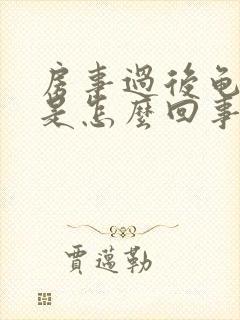 房事過後龟
是怎麼回事
賈邁勒